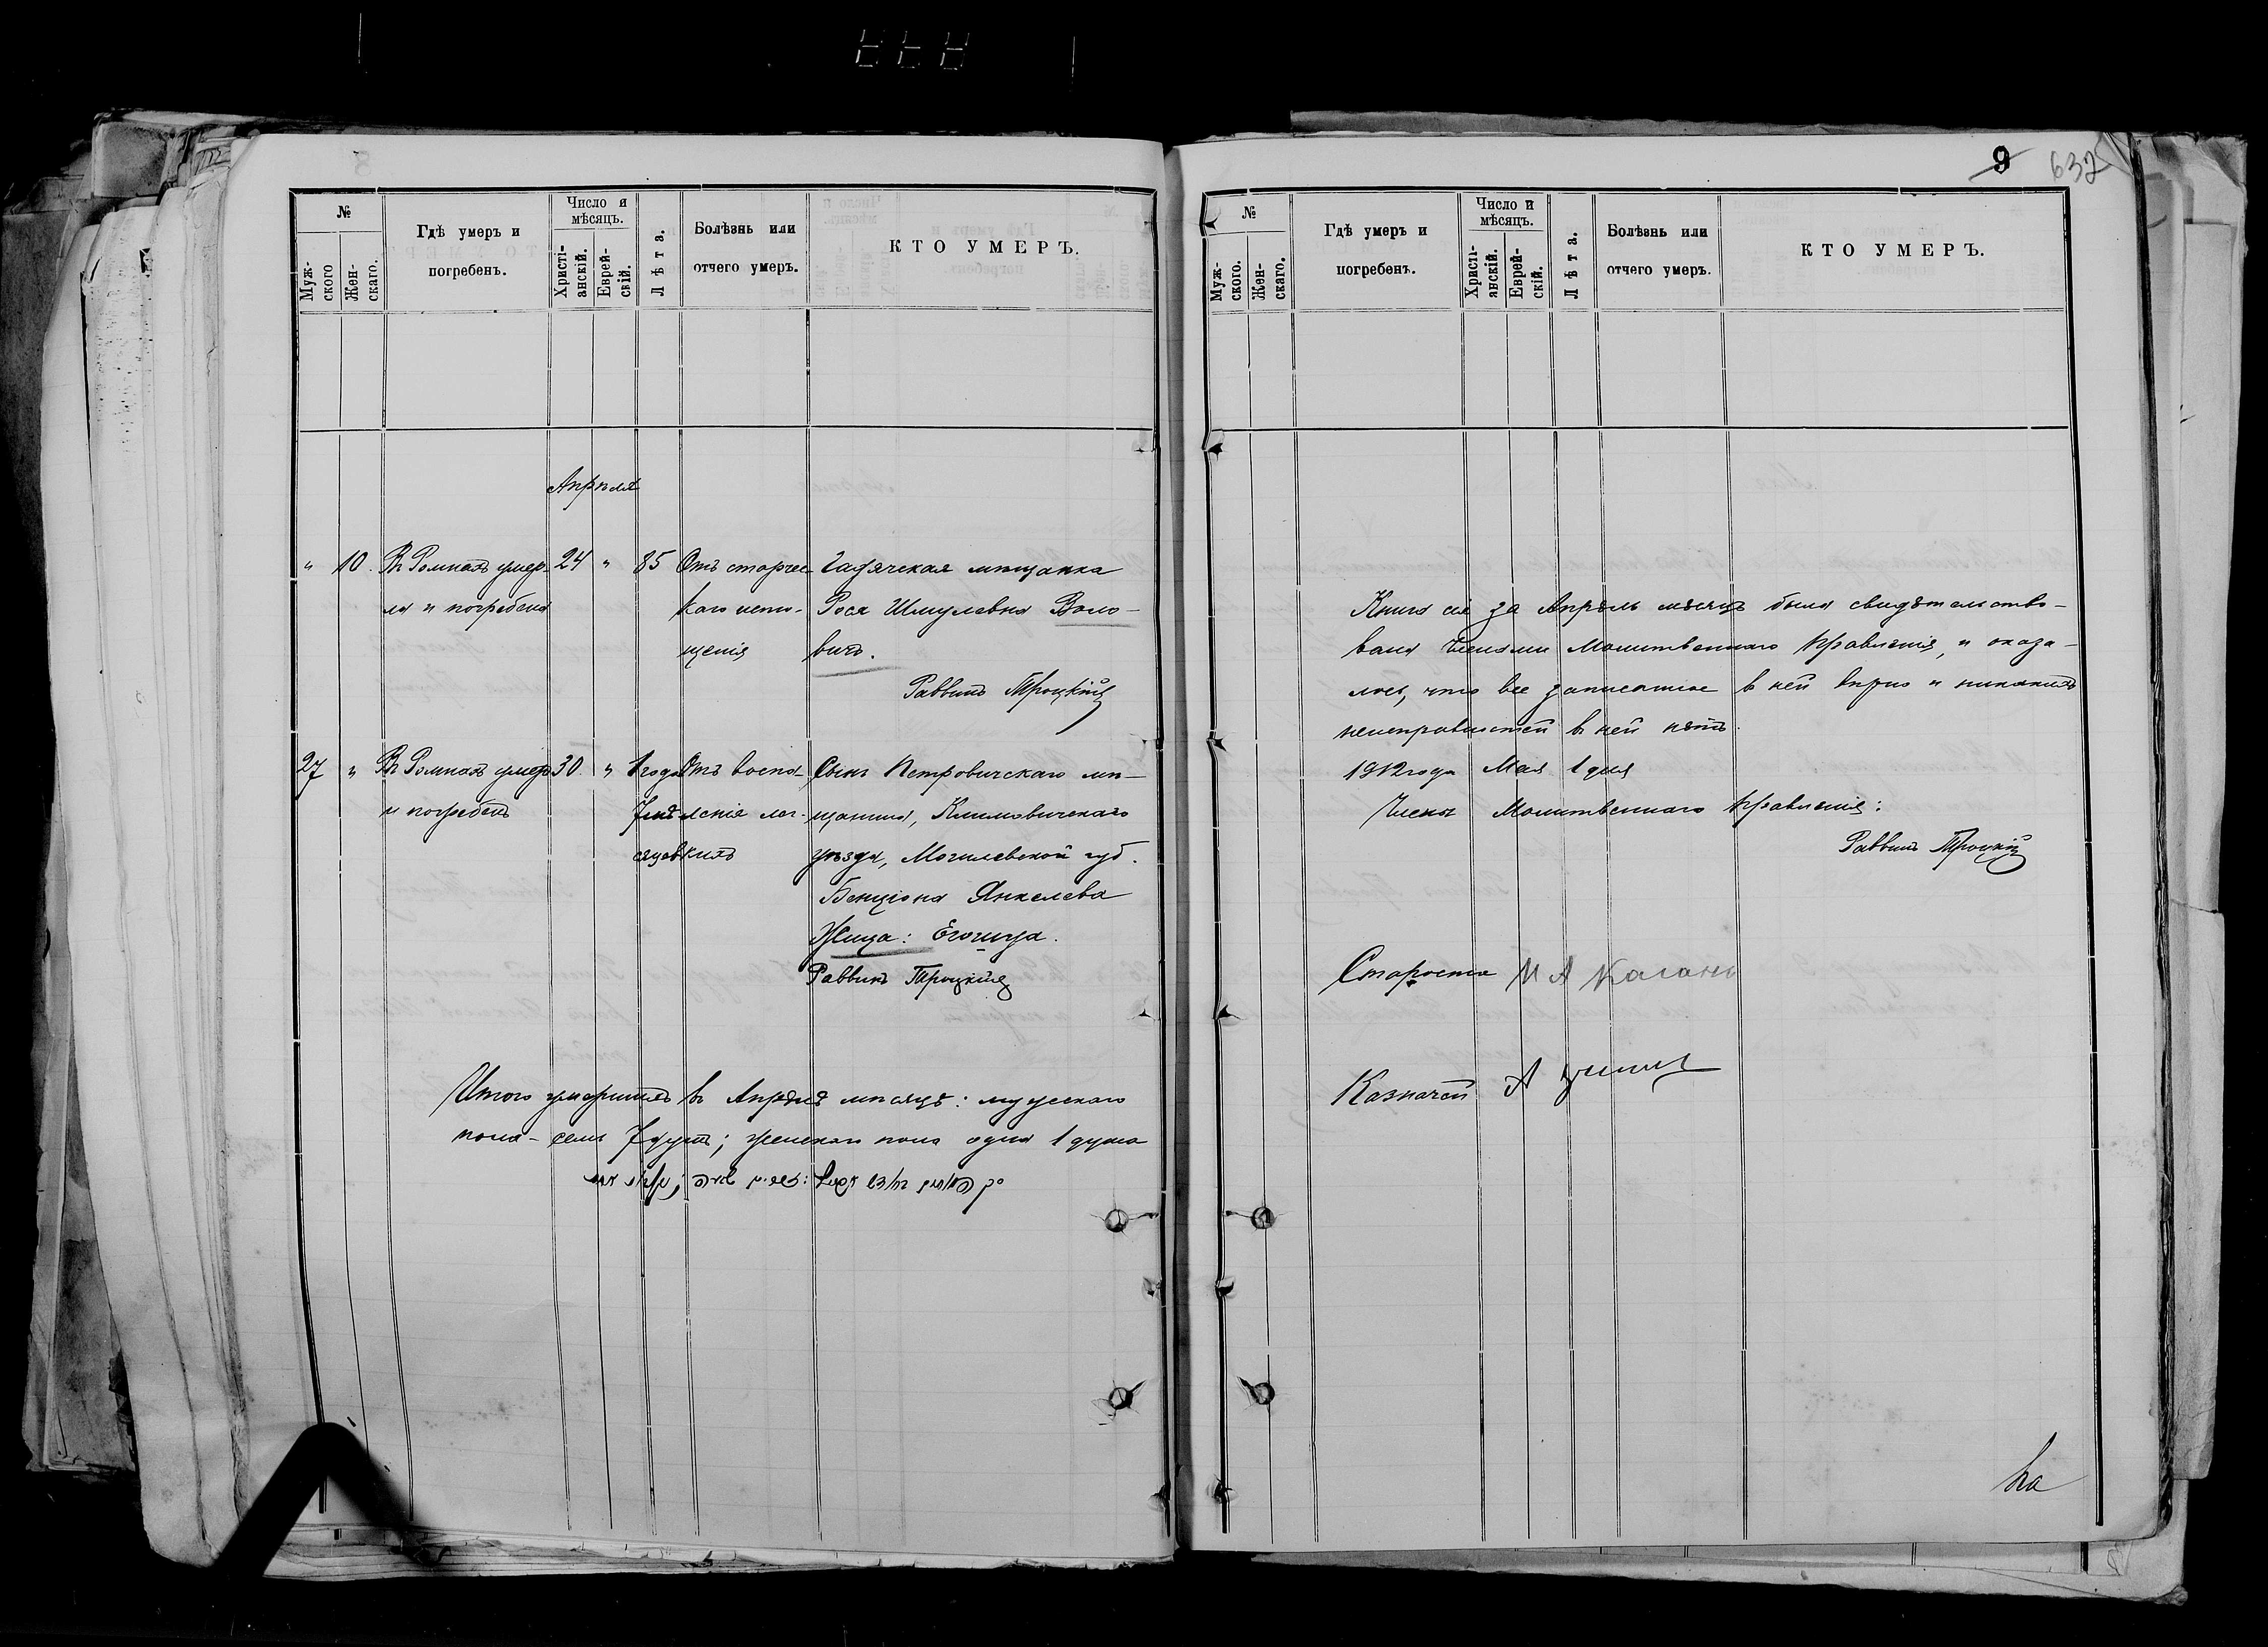 №
Муж-
ского
Жен-
скаго.
Гдѣ умеръ и
погребенъ.
Число и
мѣсяцъ.
Христі-
анскій.
Еврей-
скій.
Лѣта.
Болѣзнь или
отчего умеръ.
КТО УМЕРЪ.
Апрѣля
" 10. Въ Ромнахъ умер- 24 " 85 Отъ старчес- Гадячская мѣщанка
ла и погребена каго исто- Рося Шмулевна Воло-
щенія вичъ.
Раввинъ Троцкій
27 " Въ Ромнахъ умеръ 30. " 1 года Отъ воспа- Сынъ Петровичскаго мѣ-
и погребенъ 7 мѣ- ленія лег- щанина, Климовичскаго
сяцевъ кихъ уѣзда, Могилевской губ.
Бенціона Янкелева
Жица:
Раввинъ Троцкій
Итого умершихъ въ Апрѣлѣ мѣсяцѣ: мужескаго
пола - семь 7 душъ; женскаго пола одна 1 душа
9 632
№
Муж-
ского.
Жен-
скаго.
Гдѣ умеръ и
погребенъ.
Число и
мѣсяцъ.
Христі-
анскій.
Еврей-
скій.
Лѣта.
Болѣзнь или
отчего умеръ.
КТО УМЕРЪ.
Книга сія за Апрѣль мѣсяцъ была свидѣтельство-
вана Членами Молитвеннаго Правленія, и оказа-
лось, что все записанное в ней вѣрно и никакихъ
неисправностей в ней нѣтъ.
1912 года Мая 1 дня
Члены Молитвеннаго Правленія:
Раввинъ Троцкій
Староста М А Каганъ
Казначей А
на